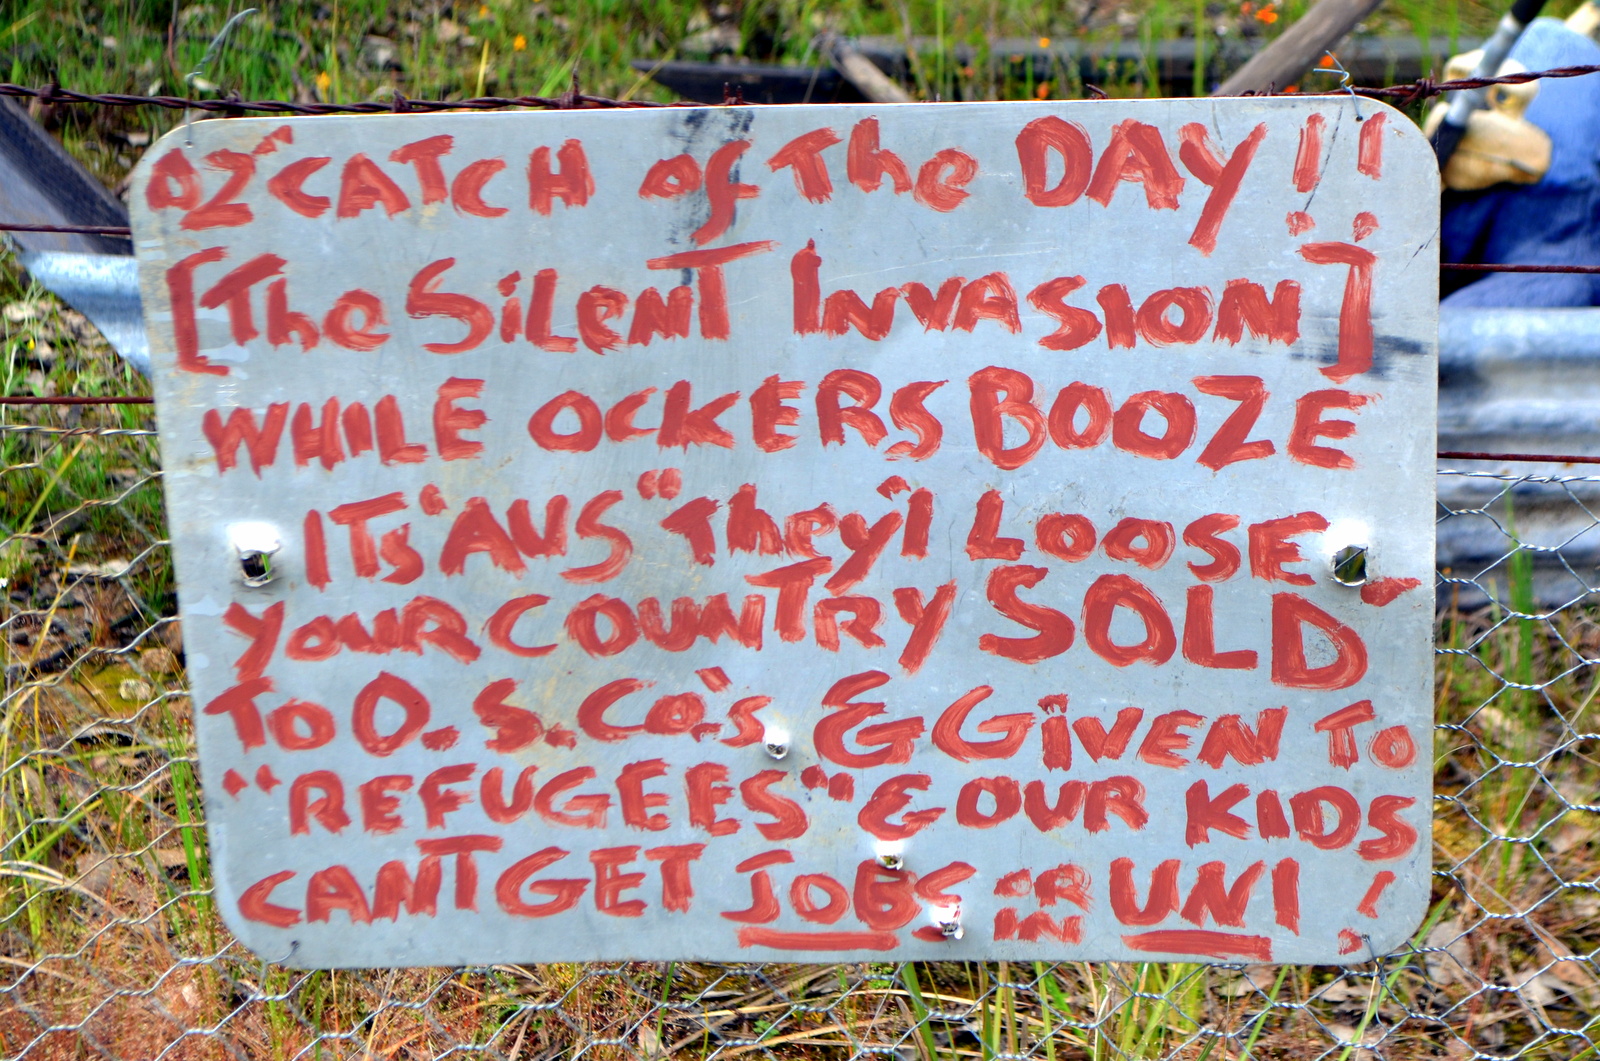 OZ "CATCH of The DAY!!
[The SiLeNT INVASION]
WHILE OCKERS BOOZE
ITs "AUS" They'l LOOSE.
YOUR COUNTRY SOLD
To O.S.Co.'s & GiVEN To
"REFUGEES" & OUR KIDS
CANT GET JOBS OR IN UNI!